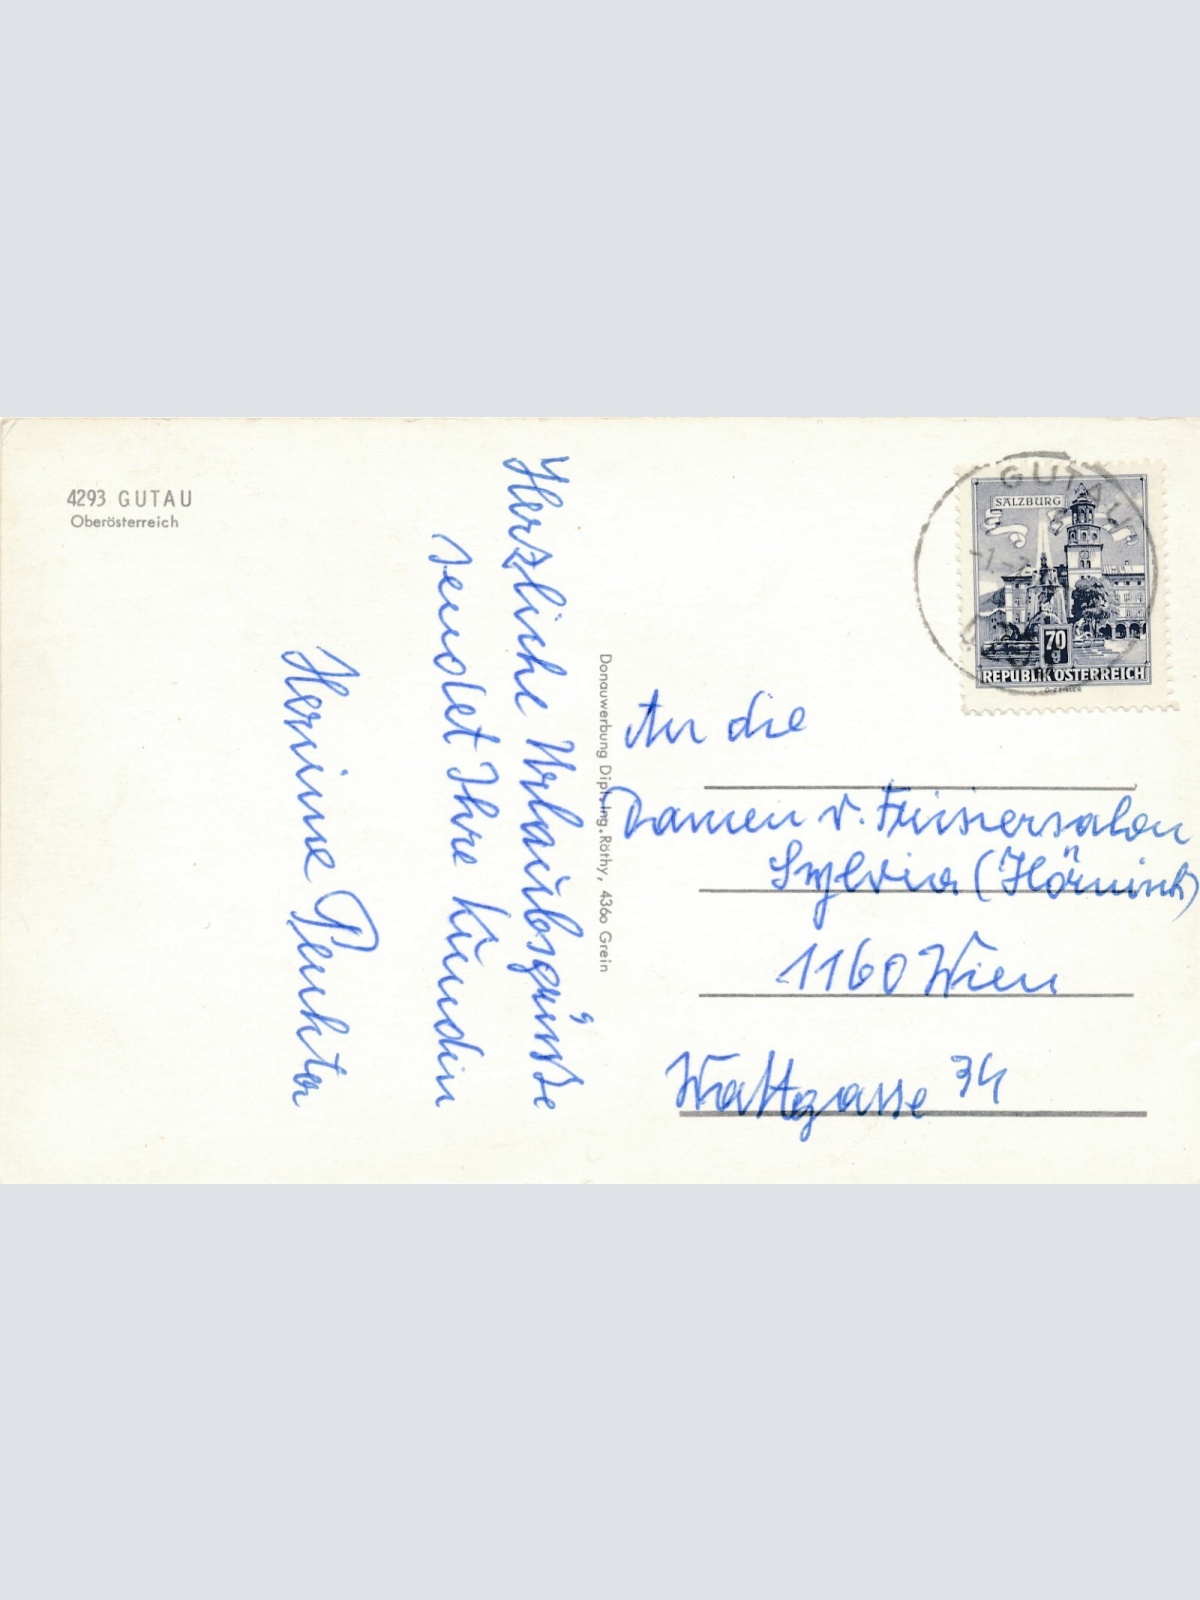 4293 GUTAU
Oberösterreich
Herzliche Urlaubsgrüsse
sendet Ihre Kundin
Hermine
Donauwerbung Dipl.-Ing. Röthy, 4360 Grein
GUTAU
SALZBURG
70
g
REPUBLIK ÖSTERREICH
An die
Damen v. Frisiersalon
Sylvia (Hörnisch)
1160 Wien
Wattgasse 34